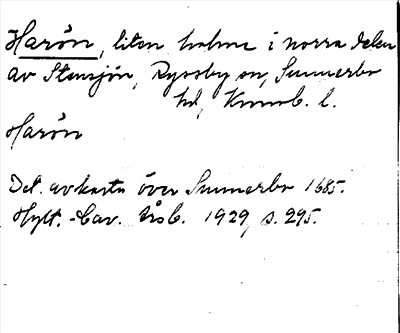 Harön, liten holme i norra delen
av Stensjön, Ryssby sn, Sunnerbo
hd, Kronob. l.
Harön
Det. avkarta över Sunnerbo 1685.
Hylt.-Cav. Årsb. 1929, s. 295.